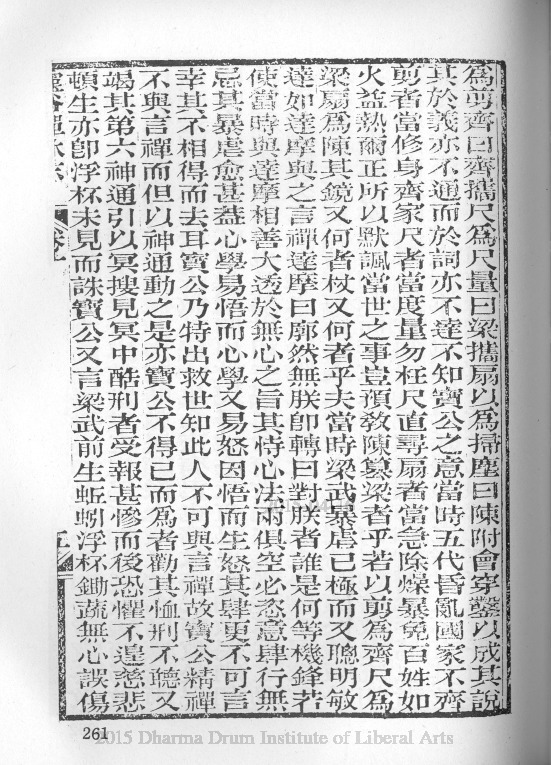 為剪齊曰齊攜尺為尺量曰梁攜扇以為掃塵曰陳附會穿鑿以成其說
其於義亦不通而於詞亦不達不知寶公之意當時五代昏亂國家不齊
剪者當修身齊家尺者當度量勿枉尺直尋扇者當急除燥暴免百姓如
火益熱爾正所以默諷當世之事豈預教陳篡梁者乎若以剪為齊尺為
梁扇為陳其鏡又何者杖又何者乎夫當時梁武暴虐已極而又聰明敏
達如達摩與之言禪達摩曰廓然無朕即轉曰對朕者誰是何等機鋒若
使當時與達摩相善大透於無心之旨其恃心法兩俱空必恣意肆行無
忌其暴虐愈甚蓋心學易悟而心學又易怒因悟而生怒其肆更不可言
幸其不相得而去耳寶公乃特出救世知此人不可與言禪故寶公精禪
不與言禪而但以神通動之是亦寶公不得已而為者勸其恤刑不聽又
竭其第六神通引以冥搜見冥中酷刑者受報甚慘而後恐懼不遑慈悲
頓生亦即浮杯未見而誅寶公又言梁武前生蚯蚓浮杯鋤蔬無心誤傷
261
2015 Dharma Drum Institute of Liberal Arts